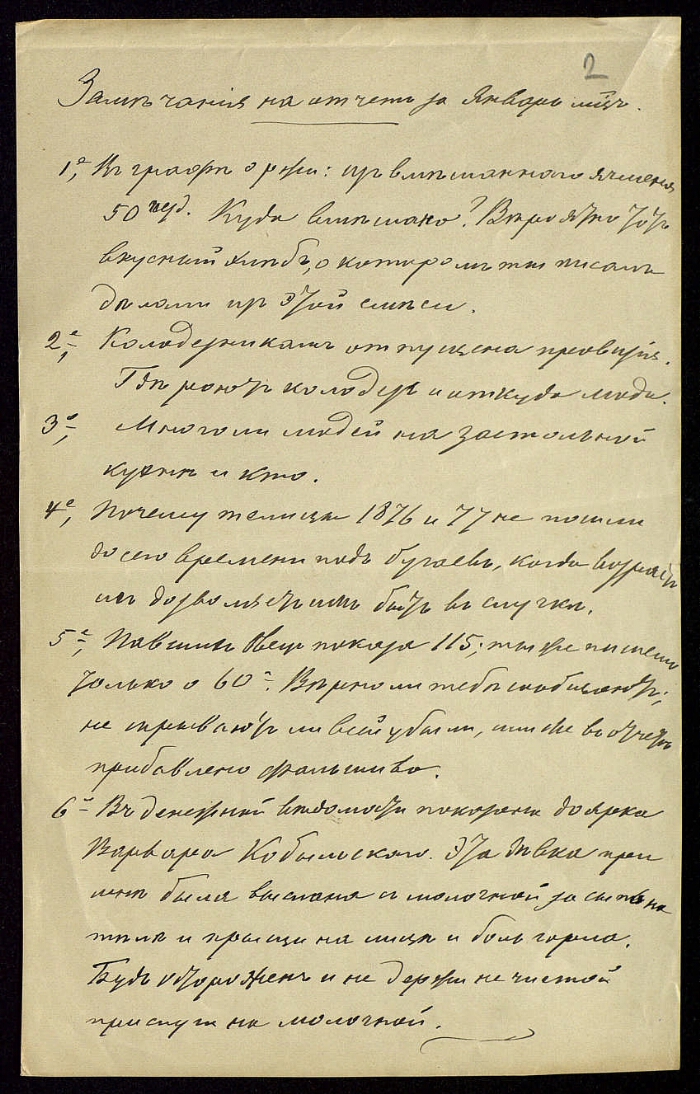 2
Замѣчанія на отчетъ за Январь мцъ.
1е, Въ графѣ о ржи: изъ вмѣшаннаго ячменя
50 чет. Куда вмѣшано? Вѣроятно тотъ
вкусный хлѣбъ, о которомъ ты писалъ
дѣлали изъ этой смѣси.
2е, Колодезникамъ отпущена провизія.
Гдѣ роютъ колодезь и откуда люди.
3е, Много ли людей на застольной
кухнѣ и кто.
4е, Почему телицы 1876 и 77 не пошли
до сего времени подъ бугаевъ, когда возрастъ
имъ дозволяетъ имъ быть въ случкѣ.
5е, Павшихъ Овецъ показа 115; ты же пишешь
только о 60и. Вѣрно ли тебѣ сообщаютъ;
не скрываютъ ли всей убыли, или же въ отчетъ
прибавлено фальшиво.
6е Въ денежной вѣдомости показана доярка
Варвара Кобыльского. Эта дѣвка при
мнѣ была выслана съ молочной за сыпь на
тѣлѣ и прыщи на лицѣ и боль горла.
Будь остороженъ и не держи не чистой
прислуги на молочной.